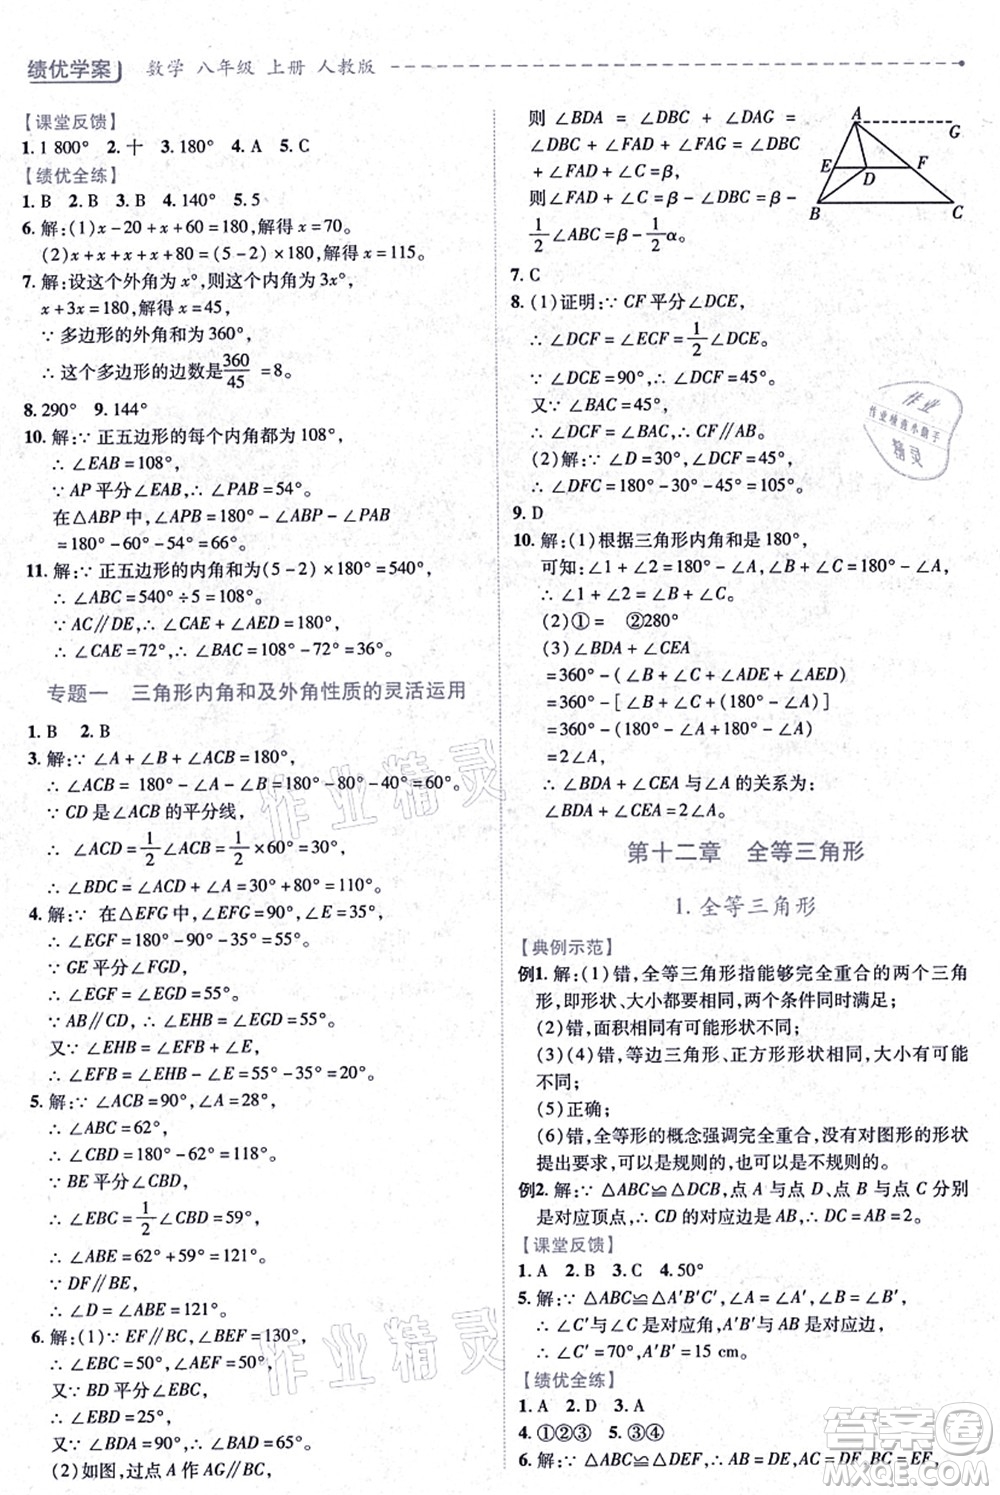 绩优学案 数学 八年级 上册 人教版
【课堂反馈】
1. 1 800° 2. 十 3. 180° 4. A 5. C
【绩优全练】
1. B 2. B 3. B 4. 140° 5. 5
6. 解:(1)x-20+x+60=180,解得x=70。
(2)x+x+x+80=(5-2)×180,解得x=115。
7. 解:设这个外角为x°,则这个内角为3x°,
x+3x=180,解得x=45,
∵多边形的外角和为360°,
∴这个多边形的边数是360/45=8。
8. 290° 9. 144°
10. 解:∵正五边形的每个内角为108°,
∴∠EAB=108°,
∵AP平分∠EAB,∴∠PAB=54°。
在△ABP中,∠APB=180°-∠ABP-∠PAB
=180°-60°-54°=66°。
11. 解:∵正五边形的内角和为(5-2)×180°=540°,
∴∠ABC=540°÷5=108°,
∵AC∥DE,∴∠CAE+∠AED=180°,
∴∠CAE=72°,∴∠BAC=108°-72°=36°。
专题一 三角形内角和及外角性质的灵活运用
1. B 2. B
3. 解:∵∠A+∠B+∠ACB=180°,
∴∠ACB=180°-∠A-∠B=180°-80°-40°=60°,
∵CD是∠ACB的平分线,
∴∠ACD=1/2∠ACB=1/2×60°=30°,
∴∠BDC=∠ACD+∠A=30°+80°=110°。
4. 解:∵在△EFG中,∠EFG=90°,∠E=35°,
∴∠EGF=180°-90°-35°=55°,
∵GE平分∠FGD,
∴∠EGF=∠EGD=55°,
∵AB∥CD,∴∠EHB=∠EGD=55°。
又∵∠EHB=∠EFB+∠E,
∴∠EFB=∠EHB-∠E=55°-35°=20°。
5. 解:∵∠ACB=90°,∠A=28°,
∴∠ABC=62°,
∴∠CBD=180°-62°=118°,
∵BE平分∠CBD,
∴∠EBC=1/2∠CBD=59°,
∴∠ABE=62°+59°=121°,
∵DF∥BE,
∴∠D=∠ABE=121°。
6. 解:(1)∵EF∥BC,∠BEF=130°,
∴∠EBC=50°,∠AEF=50°,
又∵BD平分∠EBC,
∴∠EBD=∠DBC=25°,
又∵∠BDC=90°,∴∠C=65°,
∴∠BAC=180°-50°-65°=65°。
(2)如图,过点A作AG∥BC,
则∠BDA=∠DBC+∠DAG=
∠DBC+∠FAD+∠FAG=∠DBC
+∠FAD+∠C=β,
则∠FAD+∠C=β-∠DBC=β-
1/2∠ABC=β-1/2α。
A G E D F B C
7. C
8. (1)证明:∵CF平分∠DCE,
∴∠DCF=∠ECF=1/2∠DCE。
∵∠DCE=90°,∴∠DCF=45°,
又∵∠BAC=45°,
∴∠DCF=∠BAC,∴CF∥AB。
(2)解:∵∠D=30°,∠DCF=45°,
∴∠DFC=180°-30°-45°=105°。
9. D
10. 解:(1)根据三角形内角和是180°,
可知:∠1+∠2=180°-∠A,∠B+∠C=180°-∠A,
∴∠1+∠2=∠B+∠C。
(2)①= ②280°
(3)∠BDA+∠CEA
=360°-(∠1+∠2)-[360°-(∠B+∠C)]
=360°-[360°-(∠B+∠C+∠A)]
=360°-(360°-180°+∠A)
=2∠A。
∴∠BDA+∠CEA与∠A的关系为:
∠BDA+∠CEA=2∠A。
第十二章 全等三角形
1. 全等三角形
【典例示范】
例1. 解:(1)错,全等三角形指能够完全重合的两个三角
形,即形状、大小都要相同,两个条件同时满足;
(2)错,面积相同有可能形状不同;
(3)(4)错,等边三角形、正方形形状相同,大小有可能
不同;
(5)正确;
(6)错,全等形的概念强调完全重合,没有对图形的形状
提出要求,可以是规则的,也可以是不规则的。
例2. 解:∵△ABC≌△DCB,点A与点D,点B与点C分别
是对应顶点,∴CD的对应边为AB,∴DC=AB=2。
【课堂反馈】
1. A 2. B 3. C 4. 50°
5. 解:∵△ABC≌△A′B′C′,∠C与∠C′是对应角,
∴AB与A′B′是对应边,
∴∠C′=∠C=25°,A′B′=AB=15 cm。
【绩优全练】
1. A 2. D 3. A
4. ①②③ 5. ③④
作业精灵
作业精灵
作业 作业检查小助手 精灵
答案圈
MXQE.COM